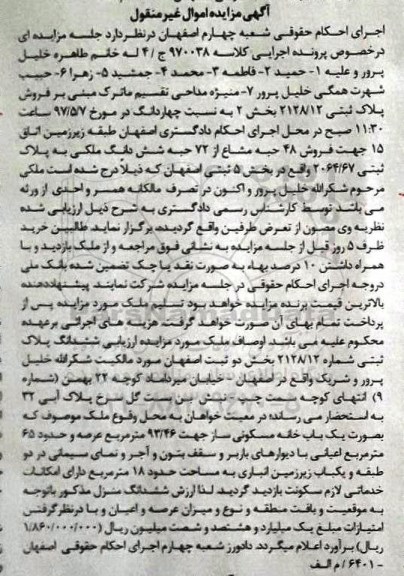 آگهی مزایده اموال غیر منقول
اجرای احکام حقوقی شعبه چهارم اصفهان در نظر دارد جلسه مزایده ای
درخصوص پرونده اجرایی کلاسه ۹۷۰۰۳۸ ج / ۴ له خانم طاهره خلیل
پرور و علیه ۱- حمید ۲- فاطمه ۳- محمد ۴- جمشید ۵- زهرا ۶- حبیب
شهرت همگی خلیل پرور ۷- منیژه مداحی تقسیم ماترک مبنی بر فروش
پلاک ثبتی ۲۱۲۸/۱۲ بخش ۲ به نسبت چهاردانگ در مورخ ۹۷/۵/۷ ساعت
۱۱:۳۰ صبح در محل اجرای احکام دادگستری اصفهان طبقه زیرزمین اتاق
۱۵ جهت فروش ۴۸ حبه مشاع از ۷۲ حبه شش دانگ ملکی به پلاک
ثبتی ۲۰۶۴/۶۷ واقع در بخش ۵ ثبتی اصفهان که ذیلاً درج شده است ملکی
مرحوم شکرالله خلیل پرور و اکنون در تصرف مالکانه همسر و احدی از ورثه
می باشد توسط کارشناس رسمی دادگستری به شرح ذیل ارزیابی شده
نظریه وی مصون از تعرض طرفین واقع گردیده، برگزار نماید. طالبین خرید
ظرف ۵ روز قبل از جلسه مزایده به نشانی فوق مراجعه و از ملک بازدید و با
همراه داشتن ۱۰ درصد بهاء به صورت نقد یا چک تضمین شده بانک ملی
دروجه اجرای احکام حقوقی در جلسه مزایده شرکت نمایند. پیشنهاددهنده
بالاترین قیمت برنده مزایده خواهد بود تسلیم ملک مورد مزایده پس از
پرداخت تمام بهای آن صورت خواهد گرفت. هزینه های اجرائی برعهده
محکوم علیه می باشد. اوصاف ملک مورد مزایده ارزیابی ششدانگ پلاک
ثبتی شماره ۲۱۲۸/۱۲ بخش دو ثبت اصفهان مورد مالکیت شکرالله خلیل
پرور و شریک واقع در اصفهان - خیابان میرداماد کوچه ۲۲ بهمن (شماره
۹) انتهای کوچه سمت چپ- نبش بن بست گل سرخ پلاک آبی ۳۲
به استحضار می رساند: در معیت خواهان به محل وقوع ملک موصوف که
بصورت یک باب خانه مسکونی ساز جهت ۹۳/۴۶ مترمربع عرصه و حدود ۶۵
مترمربع اعیانی با دیوارهای باربر و سقف بتون و آجر و نمای سیمانی در دو
طبقه و یکباب زیرزمین انباری به مساحت حدود ۱۸ مترمربع دارای امکانات
خدماتی لازم سکونت بازدید گردید. لذا ارزش ششدانگ منزل مذکور باتوجه
به موقعیت و بافت منطقه و نوع و میزان عرصه و اعیان و با درنظر گرفتن
امتیازات مبلغ یک میلیارد و هشتصد و شصت میلیون ریال (۱/۸۶۰/۰۰۰/۰۰۰
ریال) برآورد اعلام میگردد. دادورز شعبه چهارم اجرای احکام حقوقی اصفهان
- ۶۴۰۱ / م الف